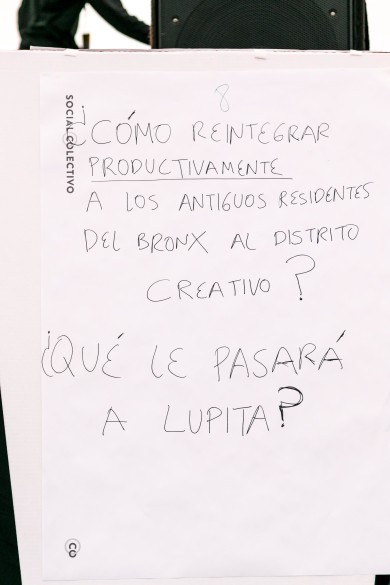 8
¿CÓMO REINTEGRAR
PRODUCTIVAMENTE
A LOS ANTIGUOS RESIDENTES
DEL BRONX AL DISTRITO
CREATIVO?
¿QUÉ LE PASARÁ
A LUPITA?
SOCIAL COLECTIVO
CO